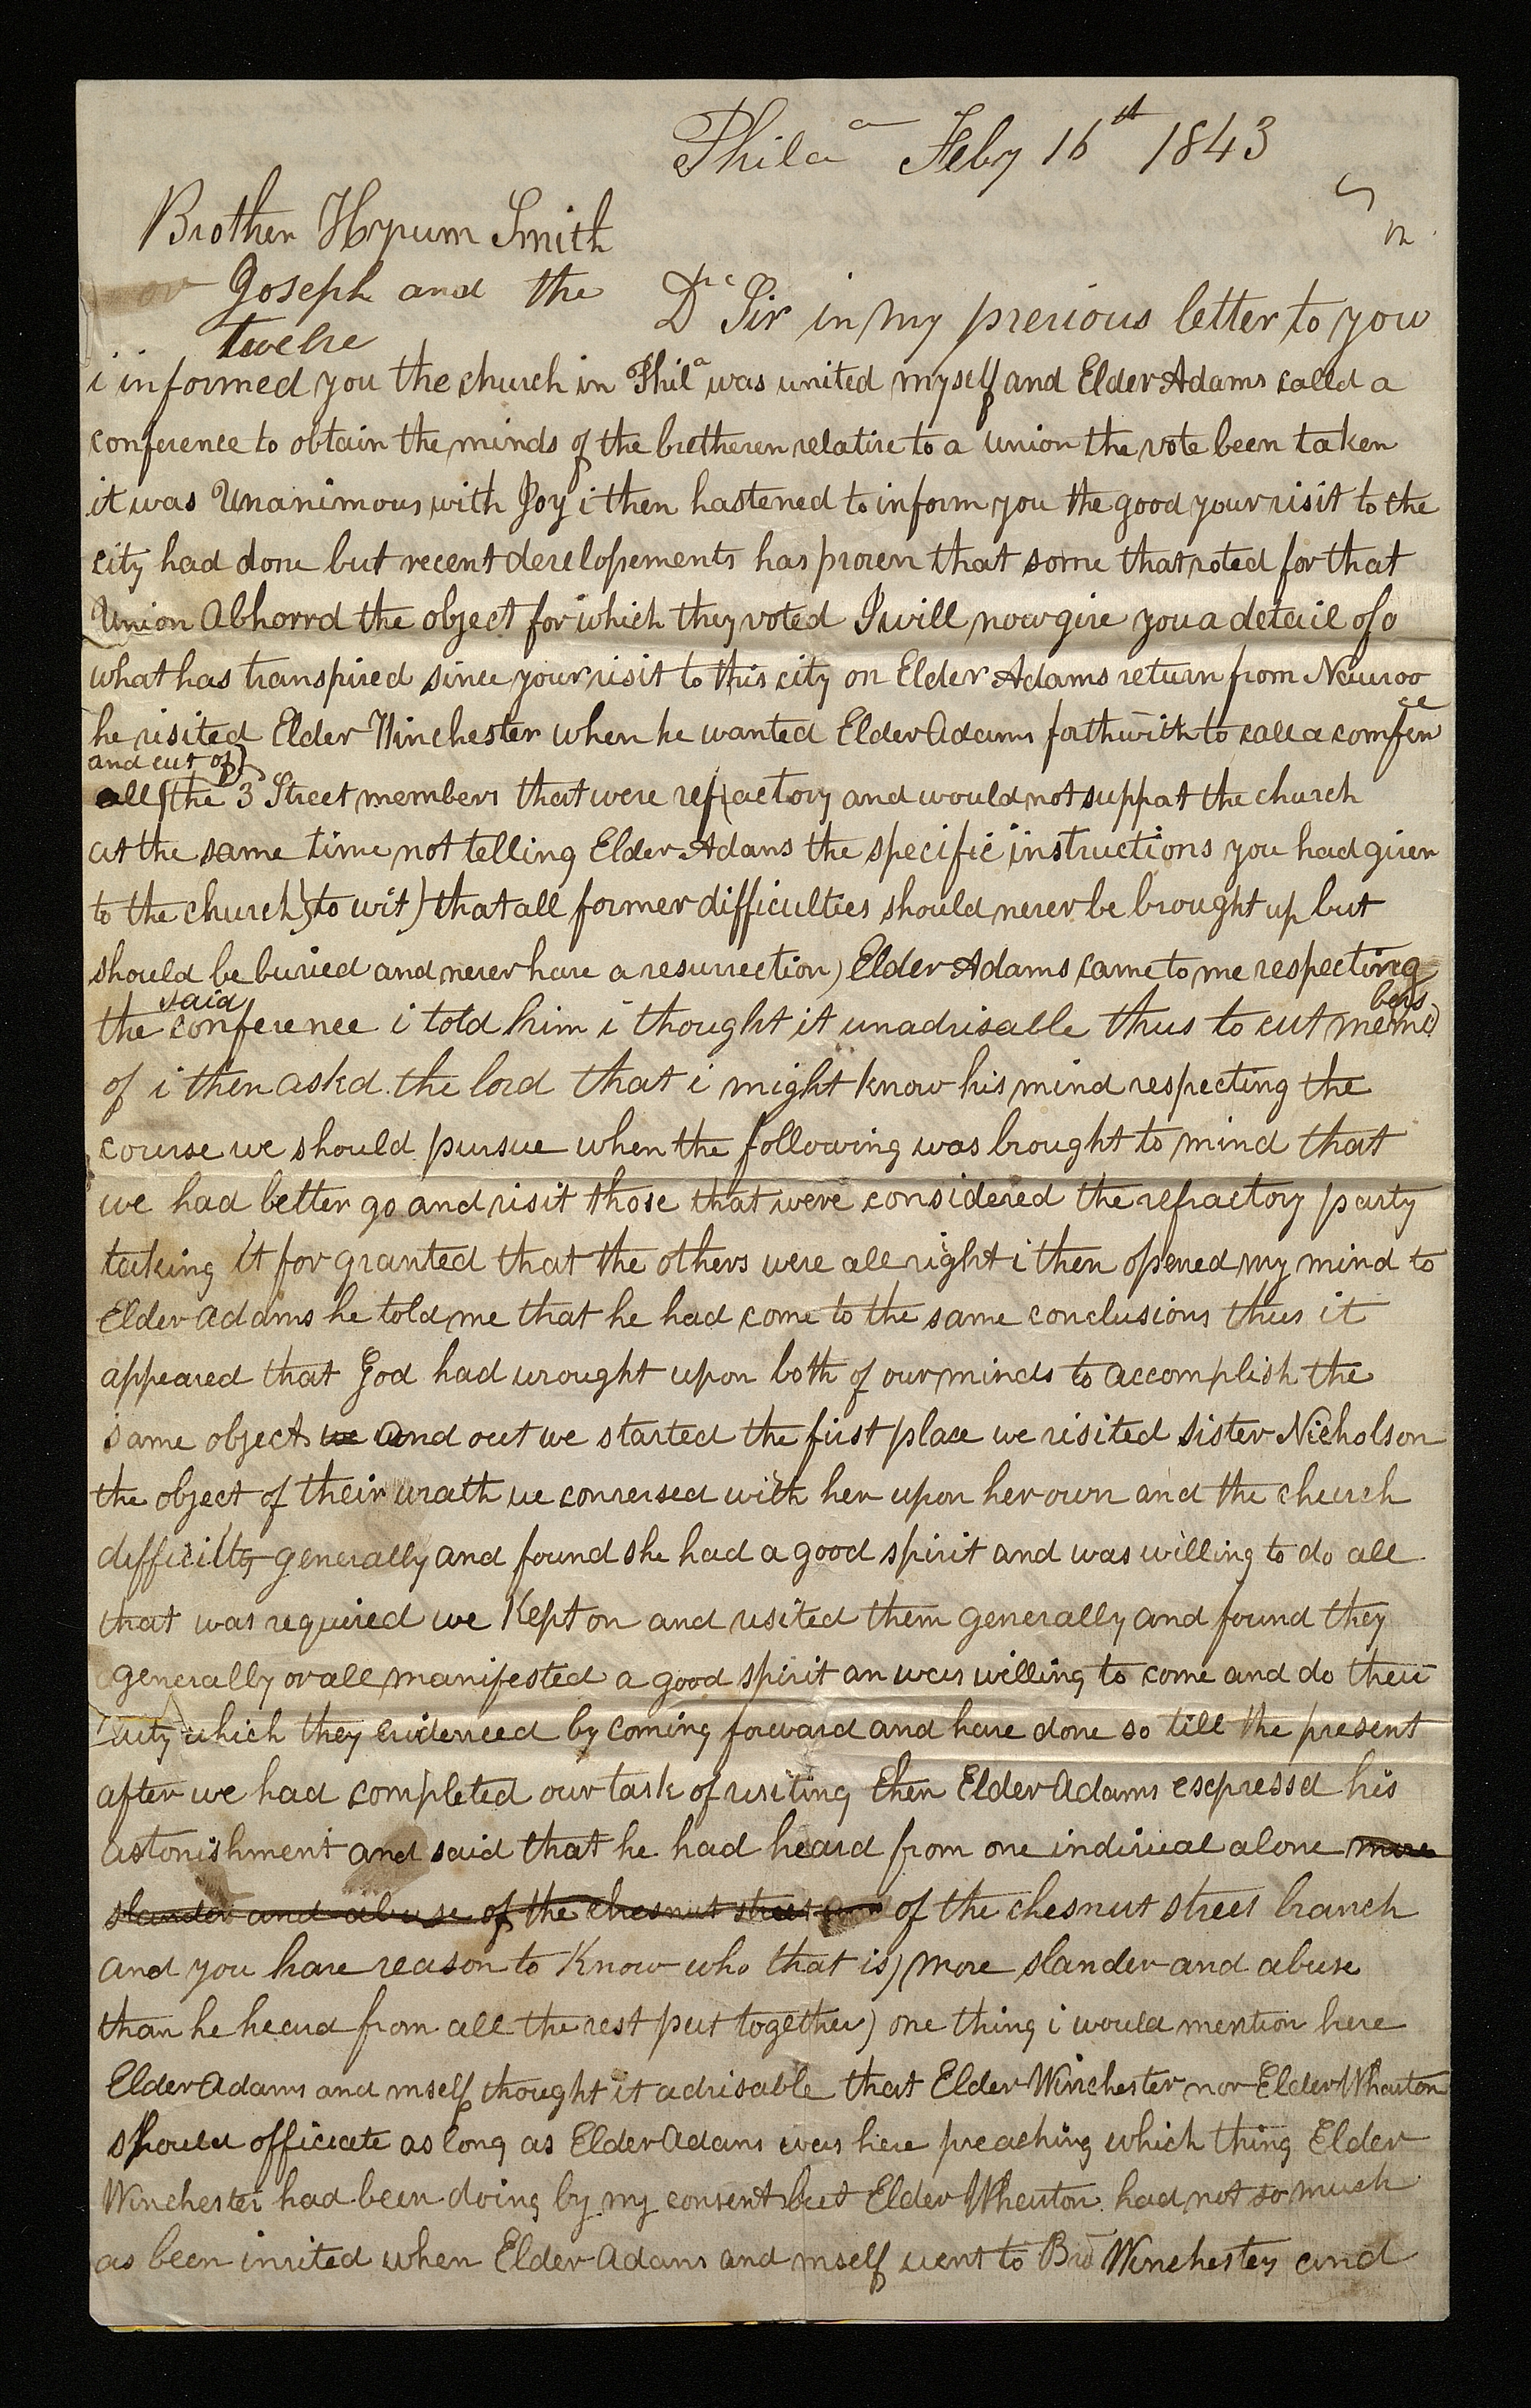 Phila Feby 16th 1843
Brother Hyrum Smith
or Joseph and the
twelve
Dr Sir in my previous letter to you
i informed you the church in Phila was united myself and Elder Adams calld a
conference to obtain the minds of the bretheren relative to a union the vote been taken
it was Unanimous with Joy i then hastened to inform you the good your visit to the
city had done but recent developements has proven that some that voted for that
Union Abhorrd the object for which they voted I will now give you a detail of
what has transpired since your visit to this city on Elder Adams return from Nauvoo
he visited Elder Winchester when he wanted Elder Adams forthwith to call a comfence
and cut of
all the 3 Street members that were refractory and would not suppat the church
at the same time not telling Elder Adams the specific instructions you had given
to the church) to wit) that all former difficulties should never be brought up but
should be buried and never have a resurrection) Elder Adams came to me respecting
said
the conference i told him i thought it unadvisable thus to cut members
of i then askd the lord that i might know his mind respecting the
course we should pursue when the following was brought to mind that
we had better go and visit those that were considered the refractory party
taking it for granted that the others were all right i then opened my mind to
Elder Adams he told me that he had come to the same conclusions thus it
appeared that God had wrought upon both of our minds to accomplish the
same objects we and out we started the first place we visited sister Nicholson
the object of their wrath we conversed with her upon her own and the church
difficilty generally and found she had a good spirit and was willing to do all
that was required we Kept on and visited them generally and found they
generally or all manifested a good spirit an was willing to come and do their
duty which they evidenced by coming forward and have done so till the present
after we had completed our task of visiting then Elder Adams expressd his
astonishment and said that he had heard from one indiviual alone more
slander and abuse of the chesnut street and of the chesnut street branch
and you have reason to Know who that is) more slander and abuse
than he heard from all the rest put together) one thing i would mention here
Elder Adams and mself thought it advisable that Elder Winchester nor Elder Wharton
should officiate as long as Elder Adams was here preaching which thing Elder
Winchester had been doing by my consent but Elder Wharton had not so much
as been invited when Elder Adams and mself went to Bro Winchesters and